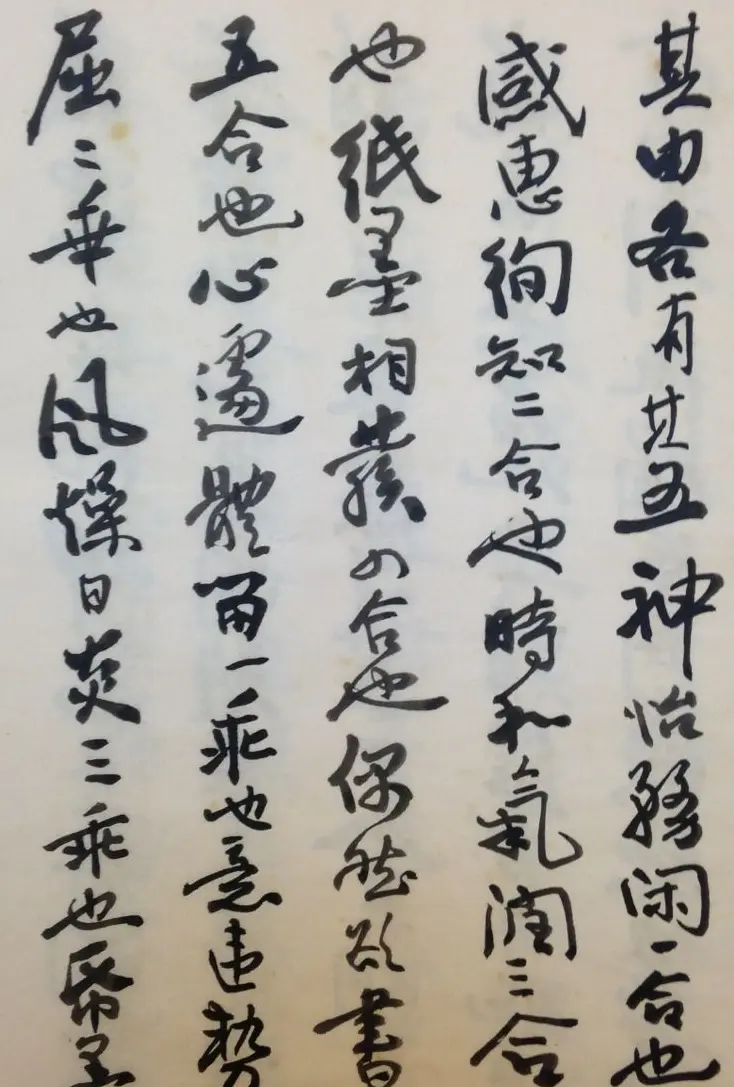 其由各有其五神怡務閑一合也
感惠徇知二合也時和氣潤三合
也紙墨相發四合也偶然欲書
五合也心遽體留一乖也意違勢
屈二乖也風燥日炎三乖也紙墨